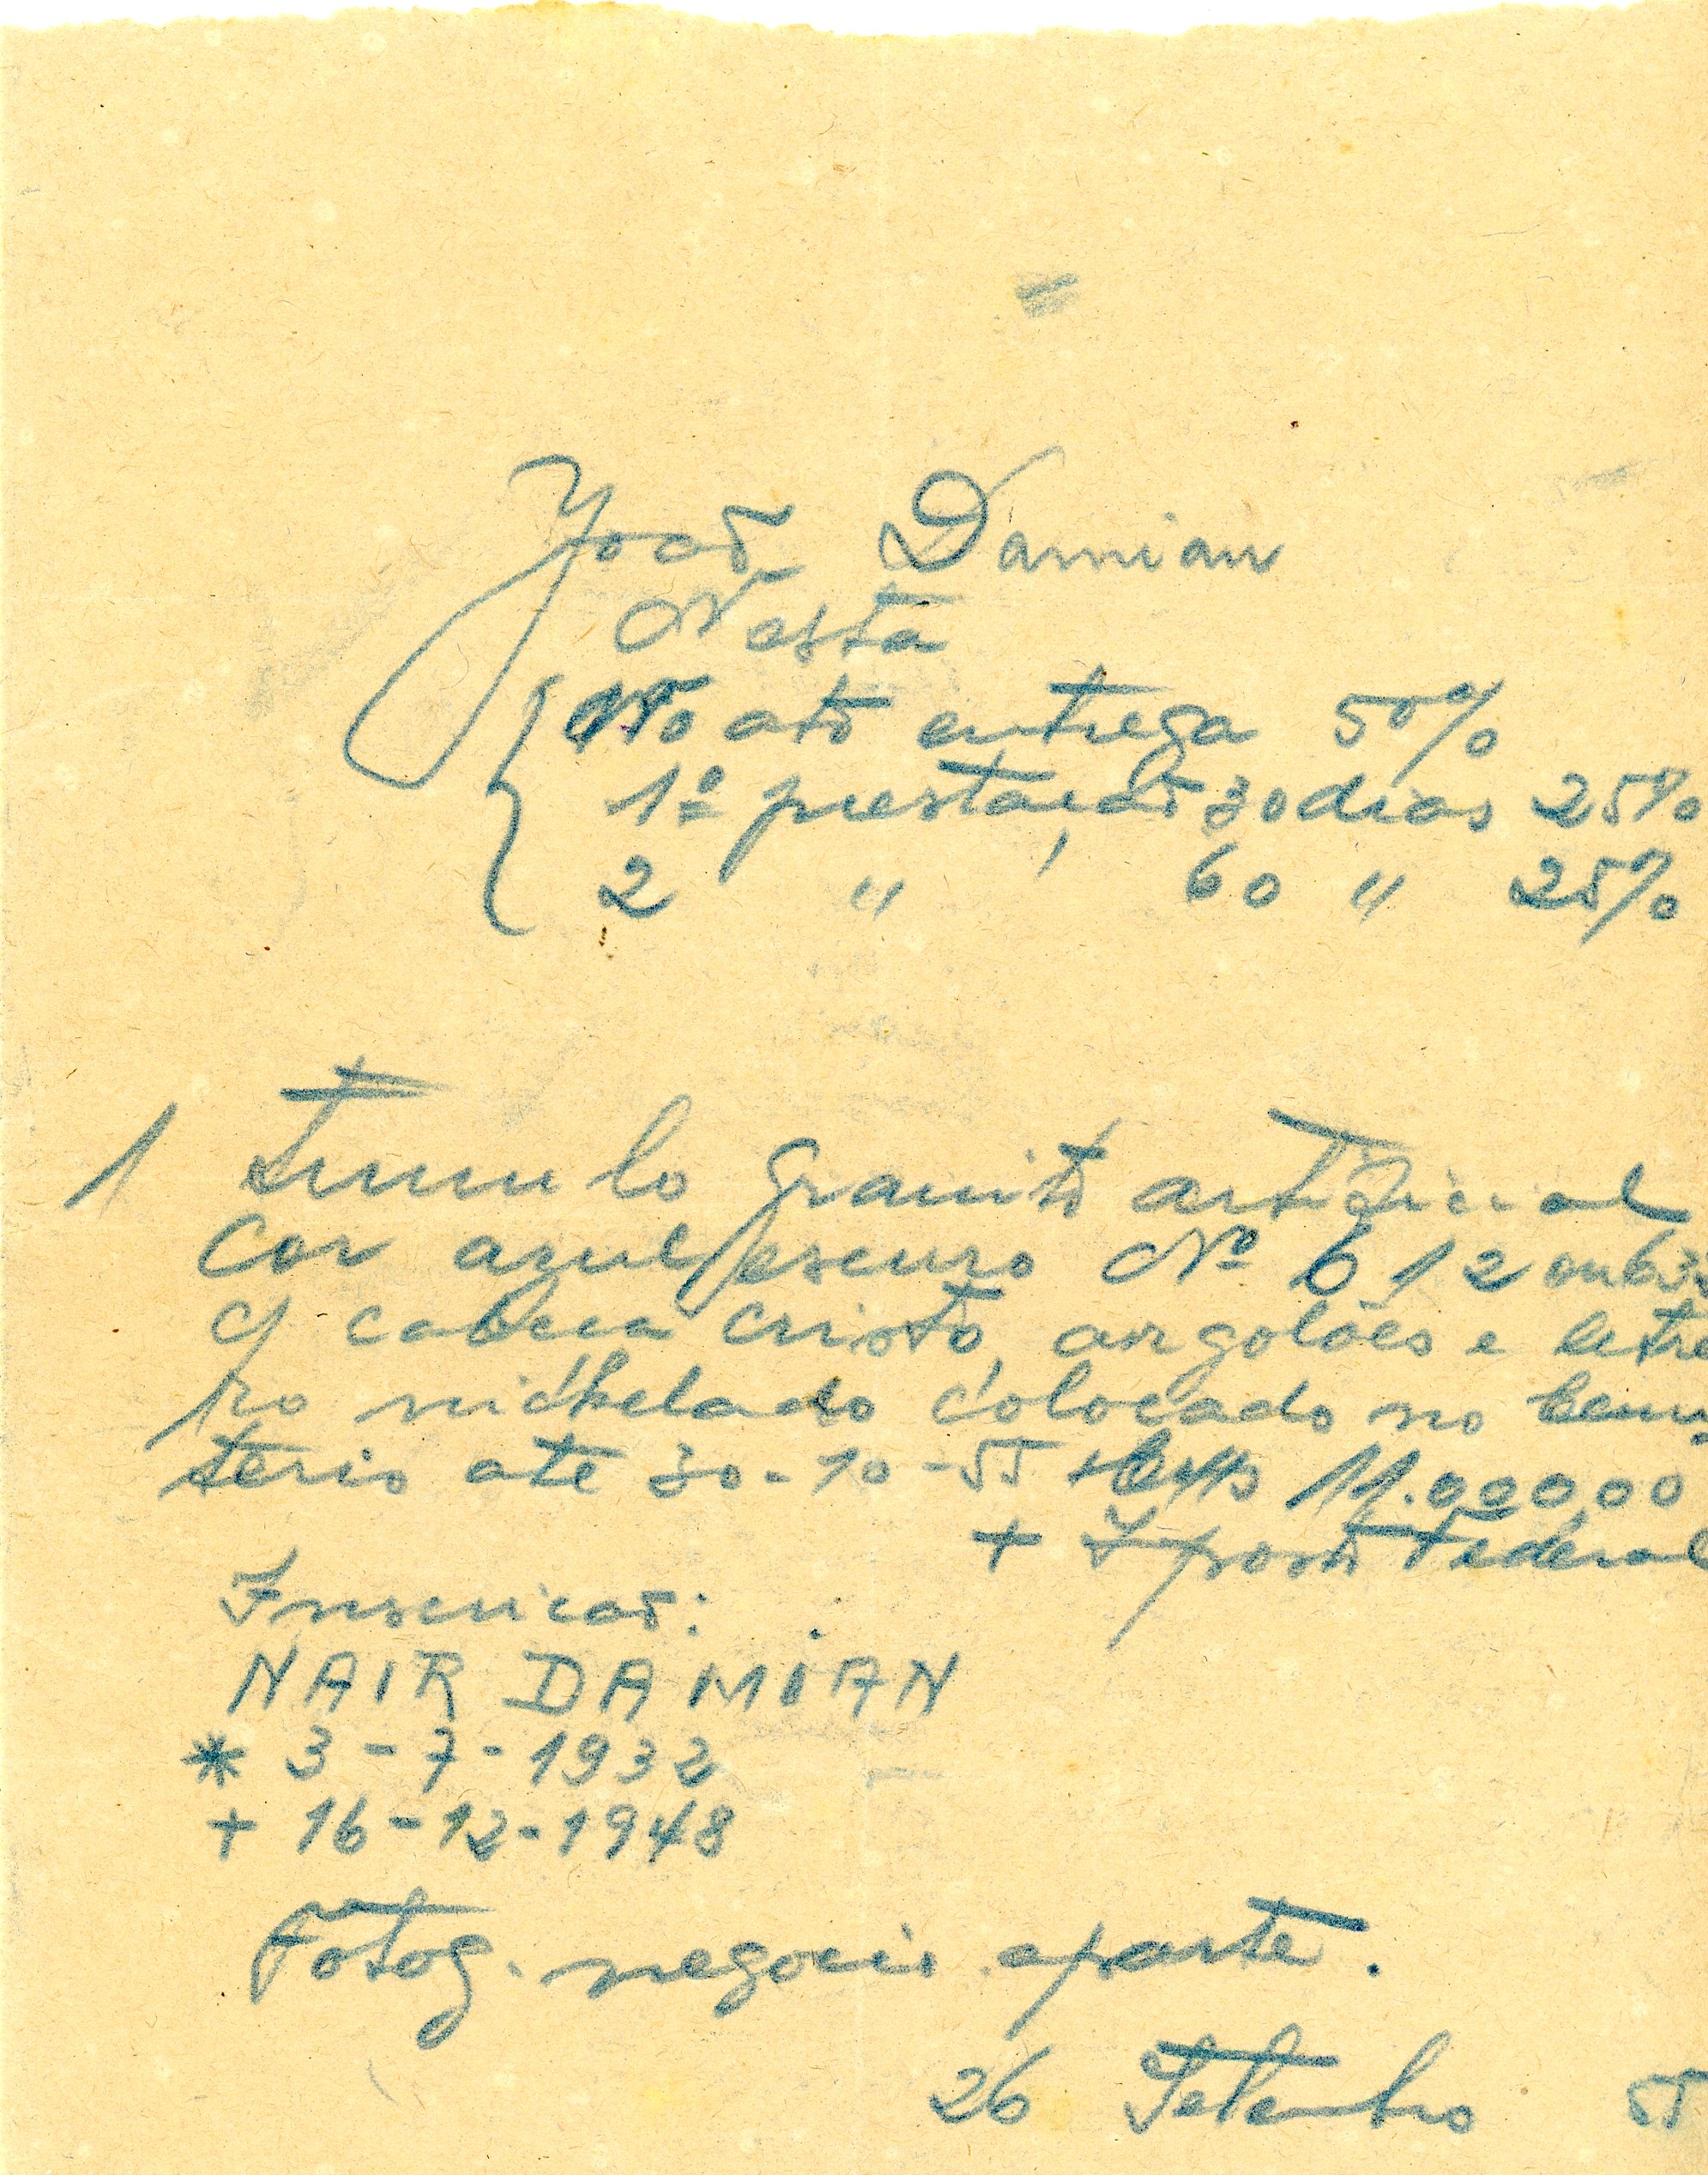 João Damian
Nesta
No ato entrega 50%
1º prestação 30 dias 25%
2 " 60 " 25%
1 Tumulo granito artificial
Cor azul escuro Nº 612 ou 63
c/ cabeça cristo, argolões e letre
ro nichelado colocado no Cemi
terio ate 30-10-55 11.000,00
+ Iposto Federal
Inscricao:
NAIR DAMIAN
* 3-7-1932
+ 16-12-1948
Fotog. negocio aparte.
26 Setembro 55